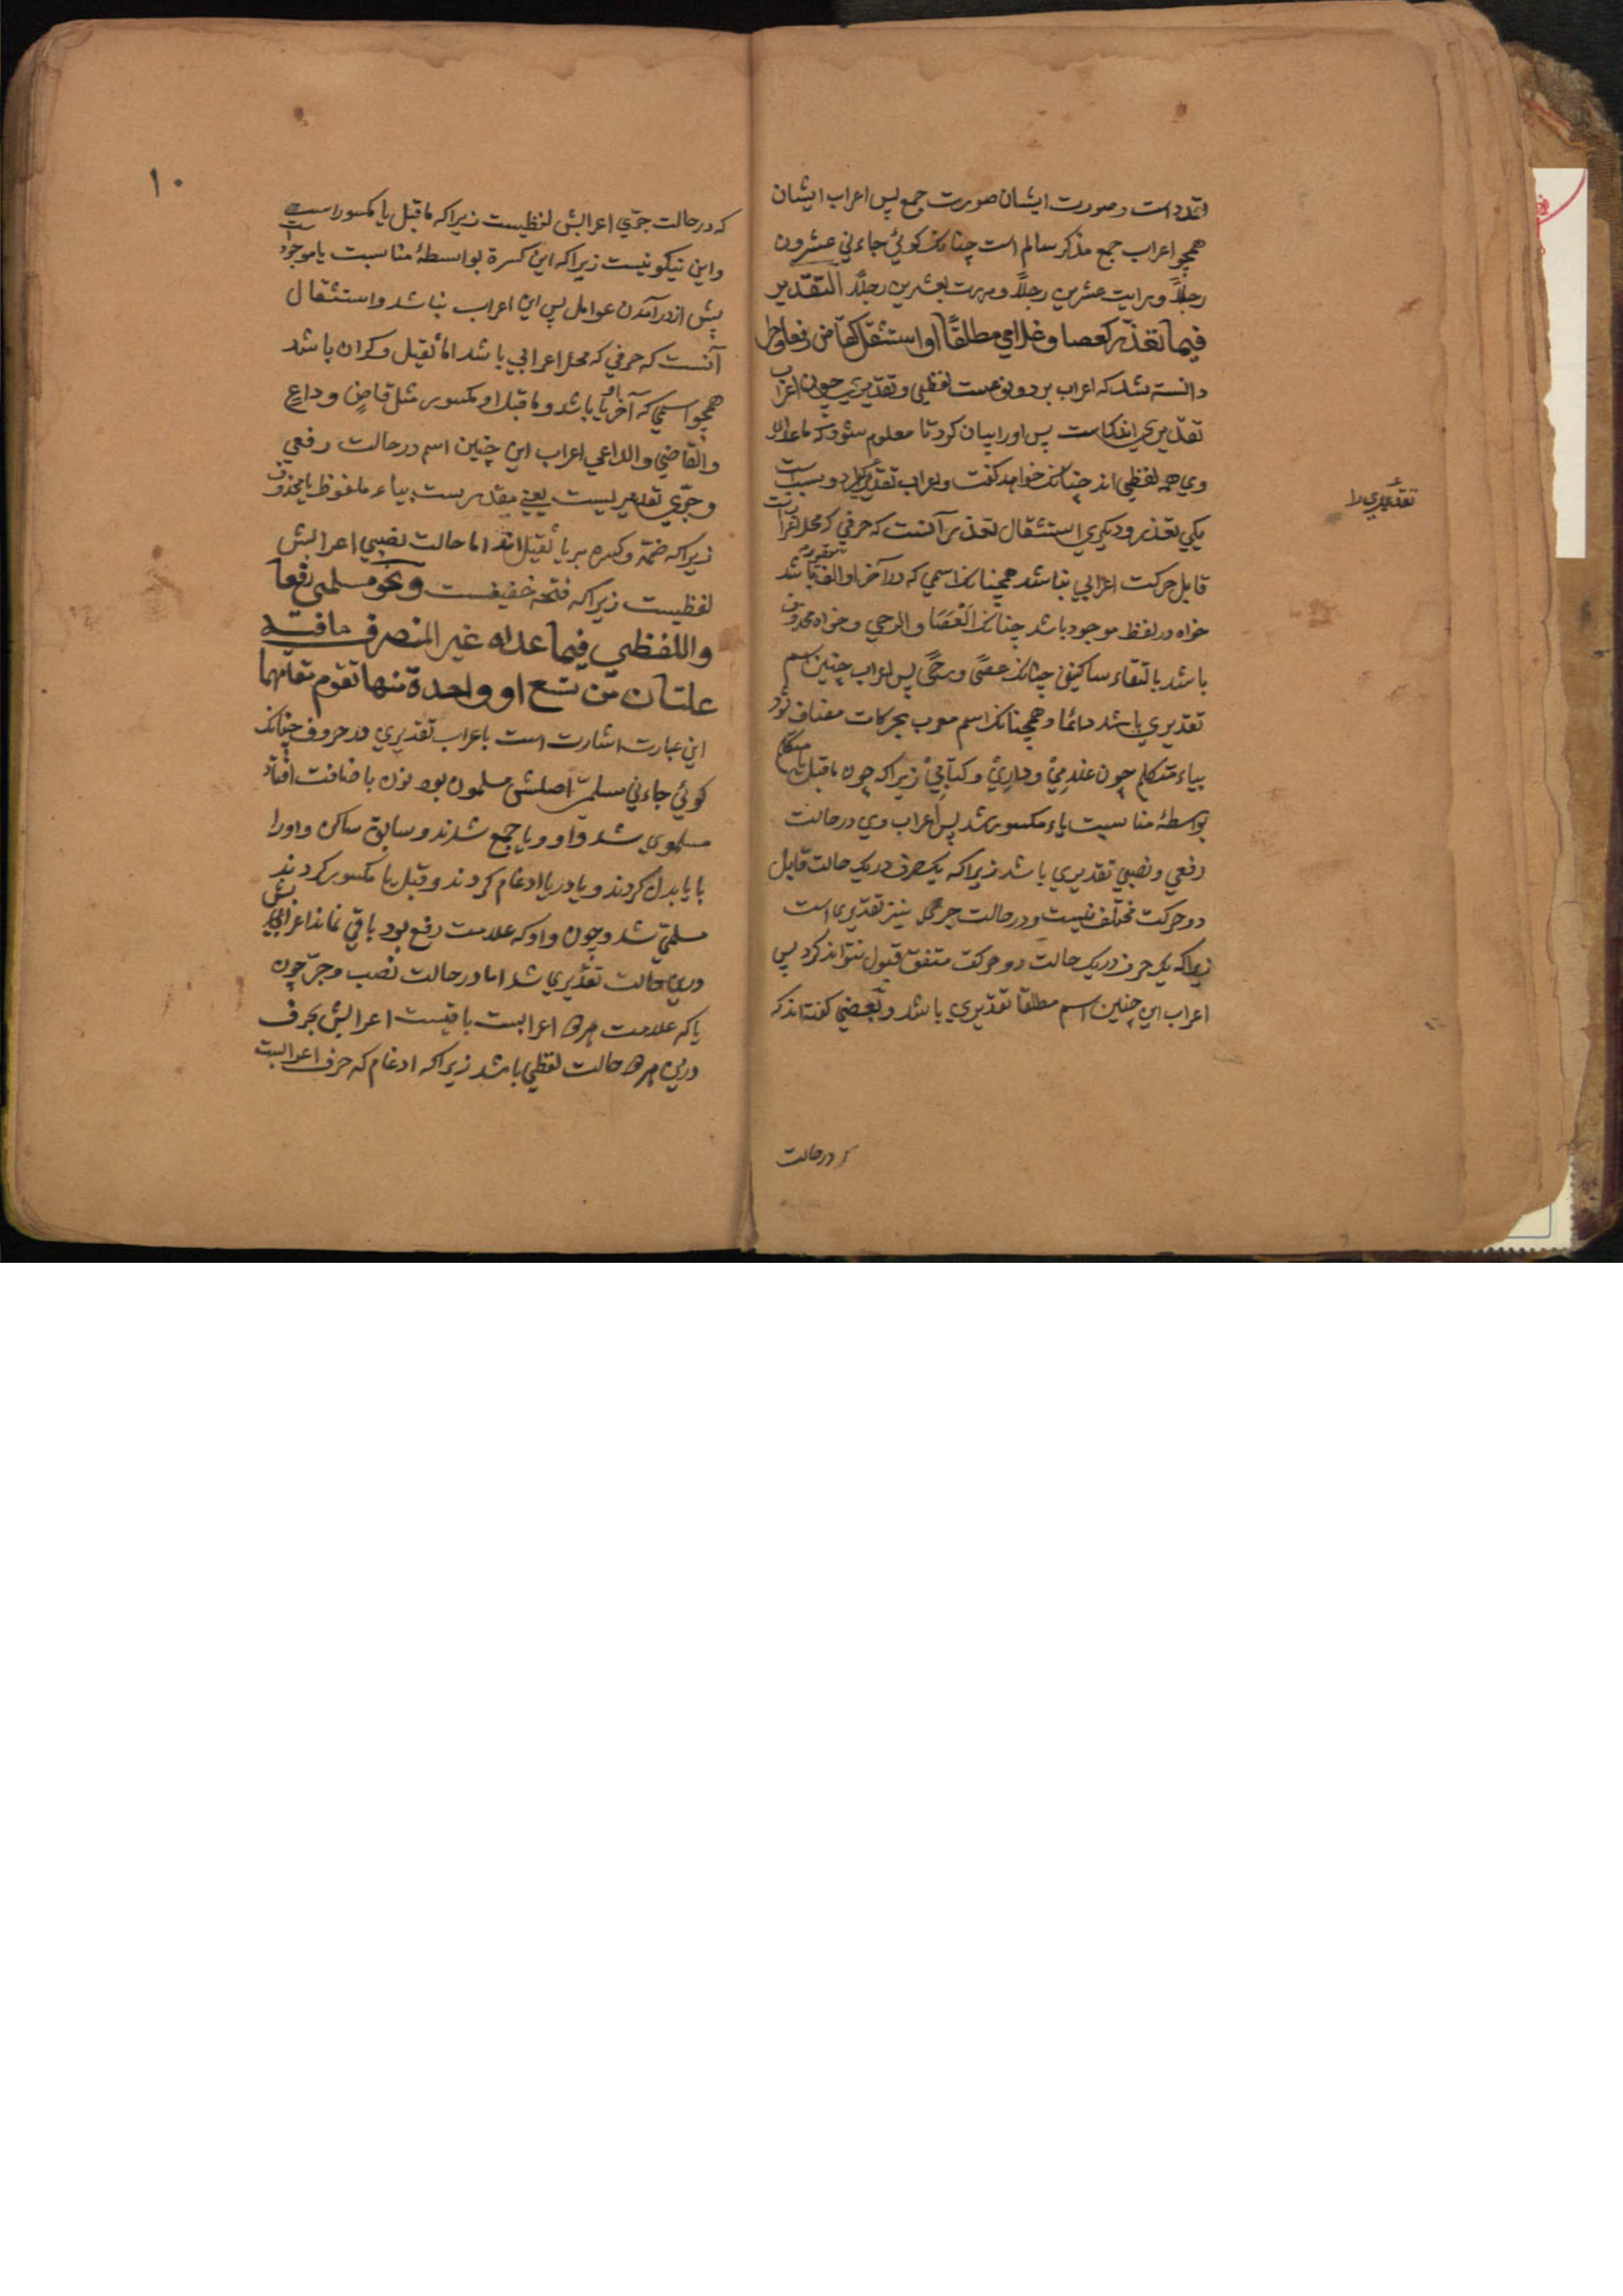 تعدد است وصورت ایشان صورت جمع پس اعراب ایشان
همچو اعراب جمع مذکر سالم است چنانک کوئي جاءني عشرون
رجلاً ورایت عشرین رجلاً ومررت بعشرین رجلاً التقدیر
فیما تعذر کعصا وغلامي مطلقاً او استثقل کقاض رفعا وجرا
دانسته شد که اعراب بر دو نوعست لفظي وتقدیري چون اعراب
تقدیري اندک است پس اورا بیان کرد تا معلوم شود که ماعداي
وي همه لفظي اند چنانک خواهد گفت واعراب تقدیري را دو سبب است
یکي تعذر ودیکري استثقال تعذر آنست که حرفي که محل اعرابست
قابل حرکت اعرابي نباشد همچنانک اسمي که در آخر او الف مقصوره باشد
خواه در لفظ موجود باشد چنانک اَلْعَصَا والرحي وخواه محذوف
باشد بالتقاء ساکنین چنانک عصًى ورحًى پس اعراب چنین اسم
تقدیري باشد دائما وهمچنانک اسم معرب بحرکات مضاف بود
بیاء متکلم چون عندِيْ ودارِيْ وکتابِيْ زیرا که چون ماقبل یاء متکلم
بواسطۀ مناسبت یاء مکسور شد پس اعراب وي در حالت
رفعي ونصبي تقدیري باشد زیرا که یک حرف در یک حالت قابل
دو حرکت مختلف نیست ودر حالت جر نیز تقدیري است
زیرا که یک حرف در یک حالت دو حرکت متفق قبول نتواند کرد پس
اعراب این چنین اسم مطلقا تقدیري باشد وبعضي گفته اند که
در حالت
تقدیري را
۱۰
که در حالت جرّي اعرابش لفظیست زیرا که ماقبل یا مکسور است
واین نیکو نیست زیرا که این کسرة بواسطۀ مناسبت یا موجودست
پیش از درآمدن عوامل پس این اعراب نباشد واستثقال
آنست که حرفي که محل اعرابي باشد اما ثقیل وگران باشد
همچو اسمي که آخر او یا باشد وماقبل او مکسور مثل قاضٍ وداعٍ
والقاضي والداعي اعراب این چنین اسم در حالت رفعي
وجرّي تقدیریست یعني مقدرست بیاء ملفوظ یا محذوف
زیرا که ضمّة وکسره بر یا ثقیل اند اما حالت نصبي اعرابش
لفظیست زیرا که فتحه خفیفست ونحو مسلمي رفعا
واللفظي فیما عداه غیر المنصرف ما فیه
علتان من تسع او واحدة منها تقوم مقامهما
این عبارت اشارت است باعراب تقدیري در حروف چنانک
کوئي جاءني مسلميّ اصلش مسلمون بود نون باضافت افتاد
مسلموي شد واو ویا جمع شدند وسابق ساکن واورا
با یا بدل کردند ویا در یا ادغام کردند وقبل یا مکسور کردند
مسلميّ شد وچون واو که علامت رفع بود باقي نماند اعرابش
درین حالت تقدیري شد اما در حالت نصب وجرّ چون
یا که علامت هر دو اعرابست باقیست اعرابش بحرف
درین هر دو حالت لفظي باشد زیرا که ادغام که حرف اعرابست